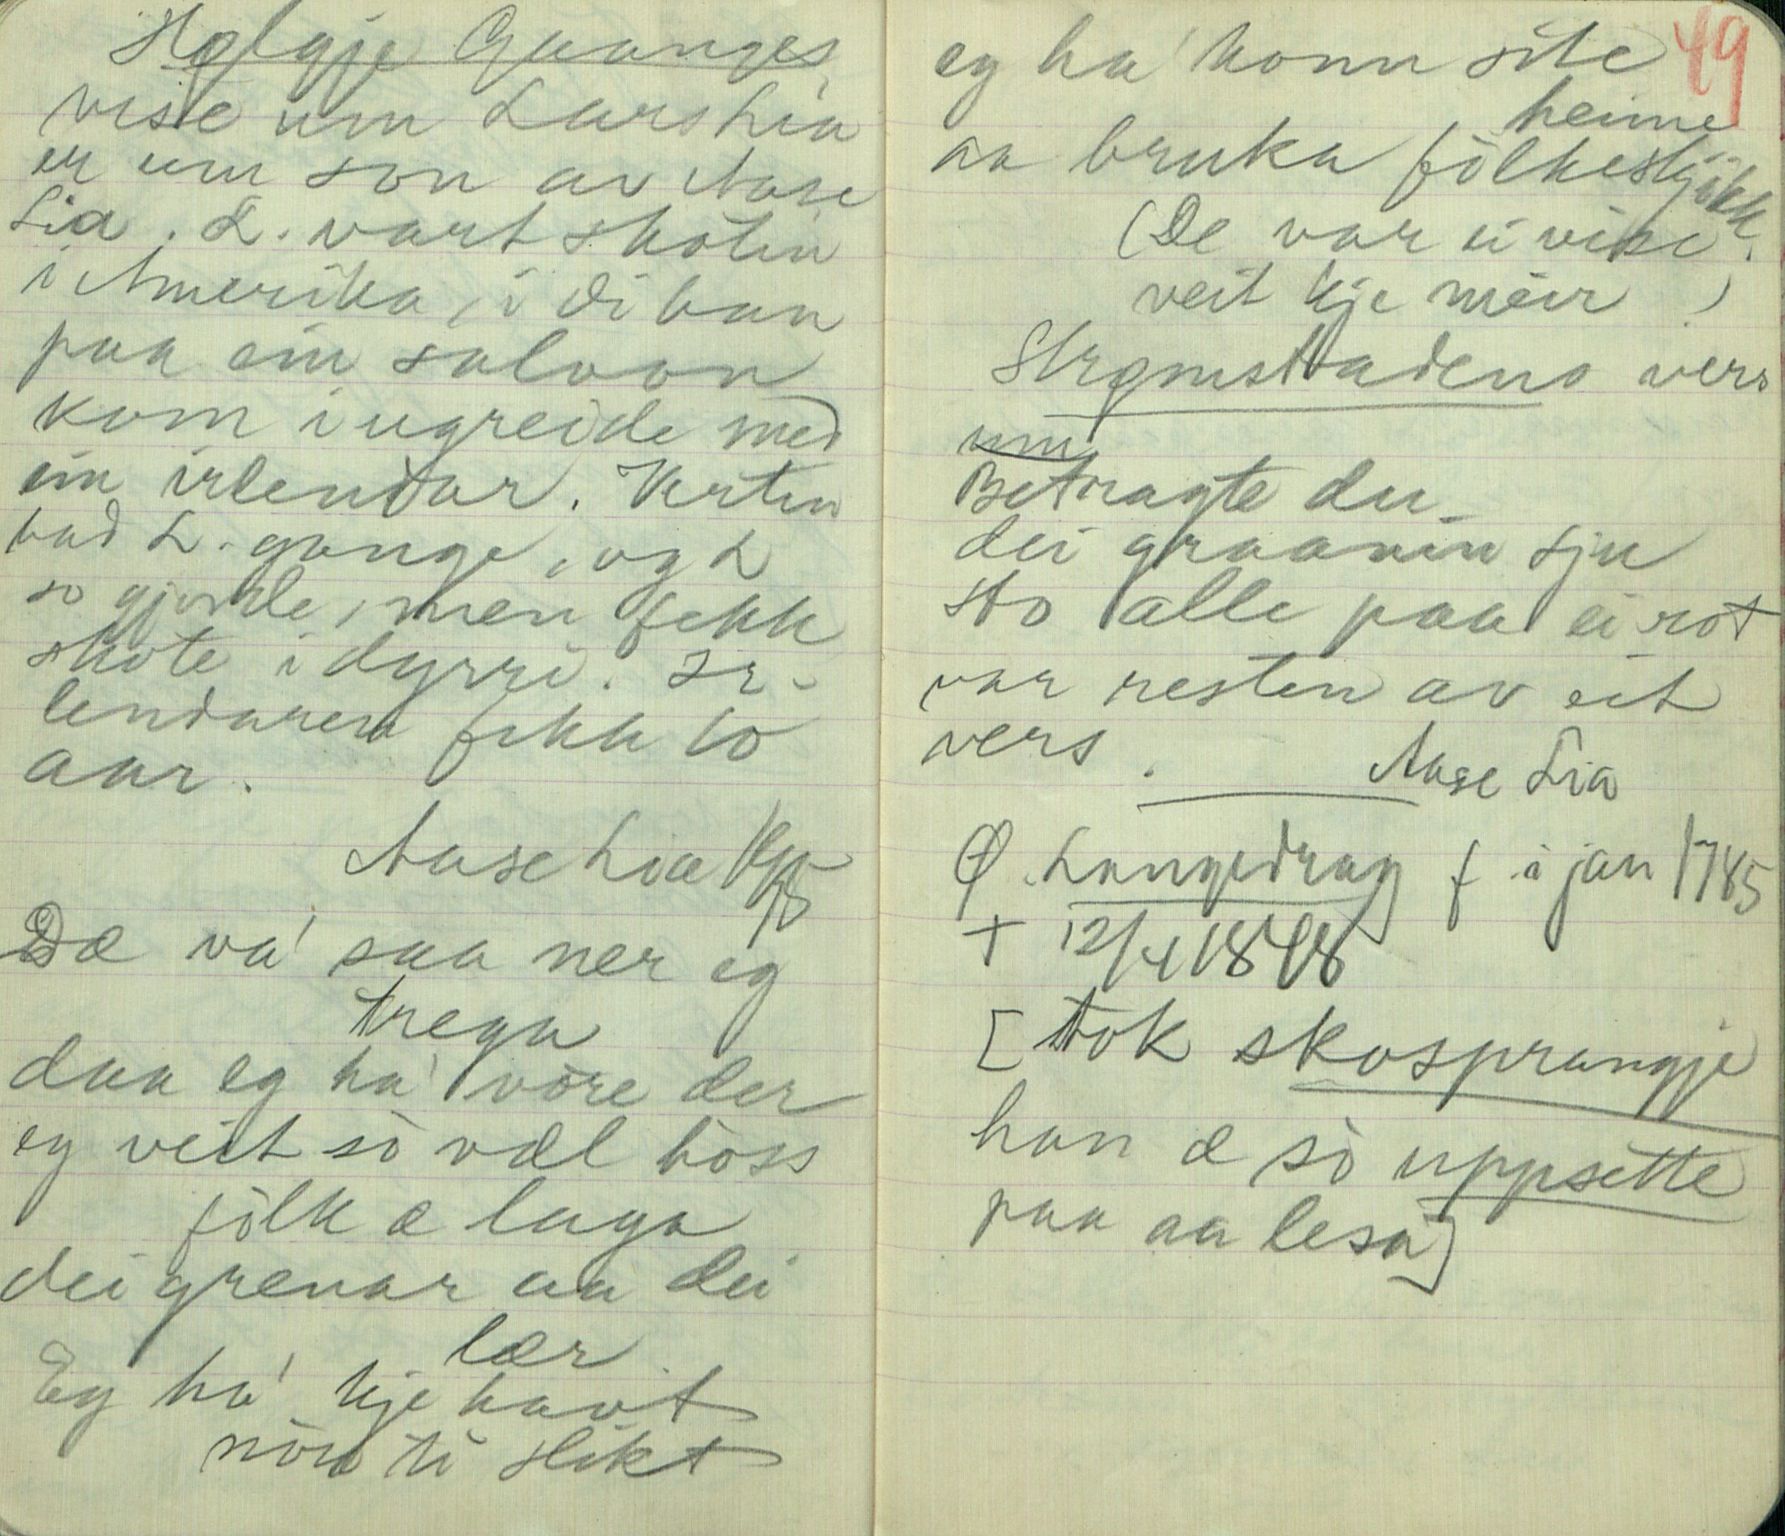 Hølgje Gvanges
vise um Lars Lia
er um son av Aase
Lia. L. vart skotin
i Amerika, i di han
paa ein saloon
kom i ugreide med
ein irlendar. Verten
bad L. gange, og L
so gjorde, men fekk
skote i dyrri. Ir-
lendaren fekk 10
aar.
Aase Lia
Dæ va' saa ner eg
trega
daa eg ha' vòre der
eg veit sò væl hòss
fòlk æ laga
dei grenar aa dei
lær
Eg ha' kje havt
nòn ti slikt
49
eg ha' konn site
heime
aa bruka fòlkeskjikk
(De var ei vise.
veit kje meir)
Strømstadens vers
um
Betragte du
dei graanin sju
sto alle paa ei rot
var resten av eit
vers.
Aase Lia
Ø. Langedrag f. i jan 1785
+ 12/4 1848
[Tok skosprangje
han æ sò uppsette
paa aa lesa]